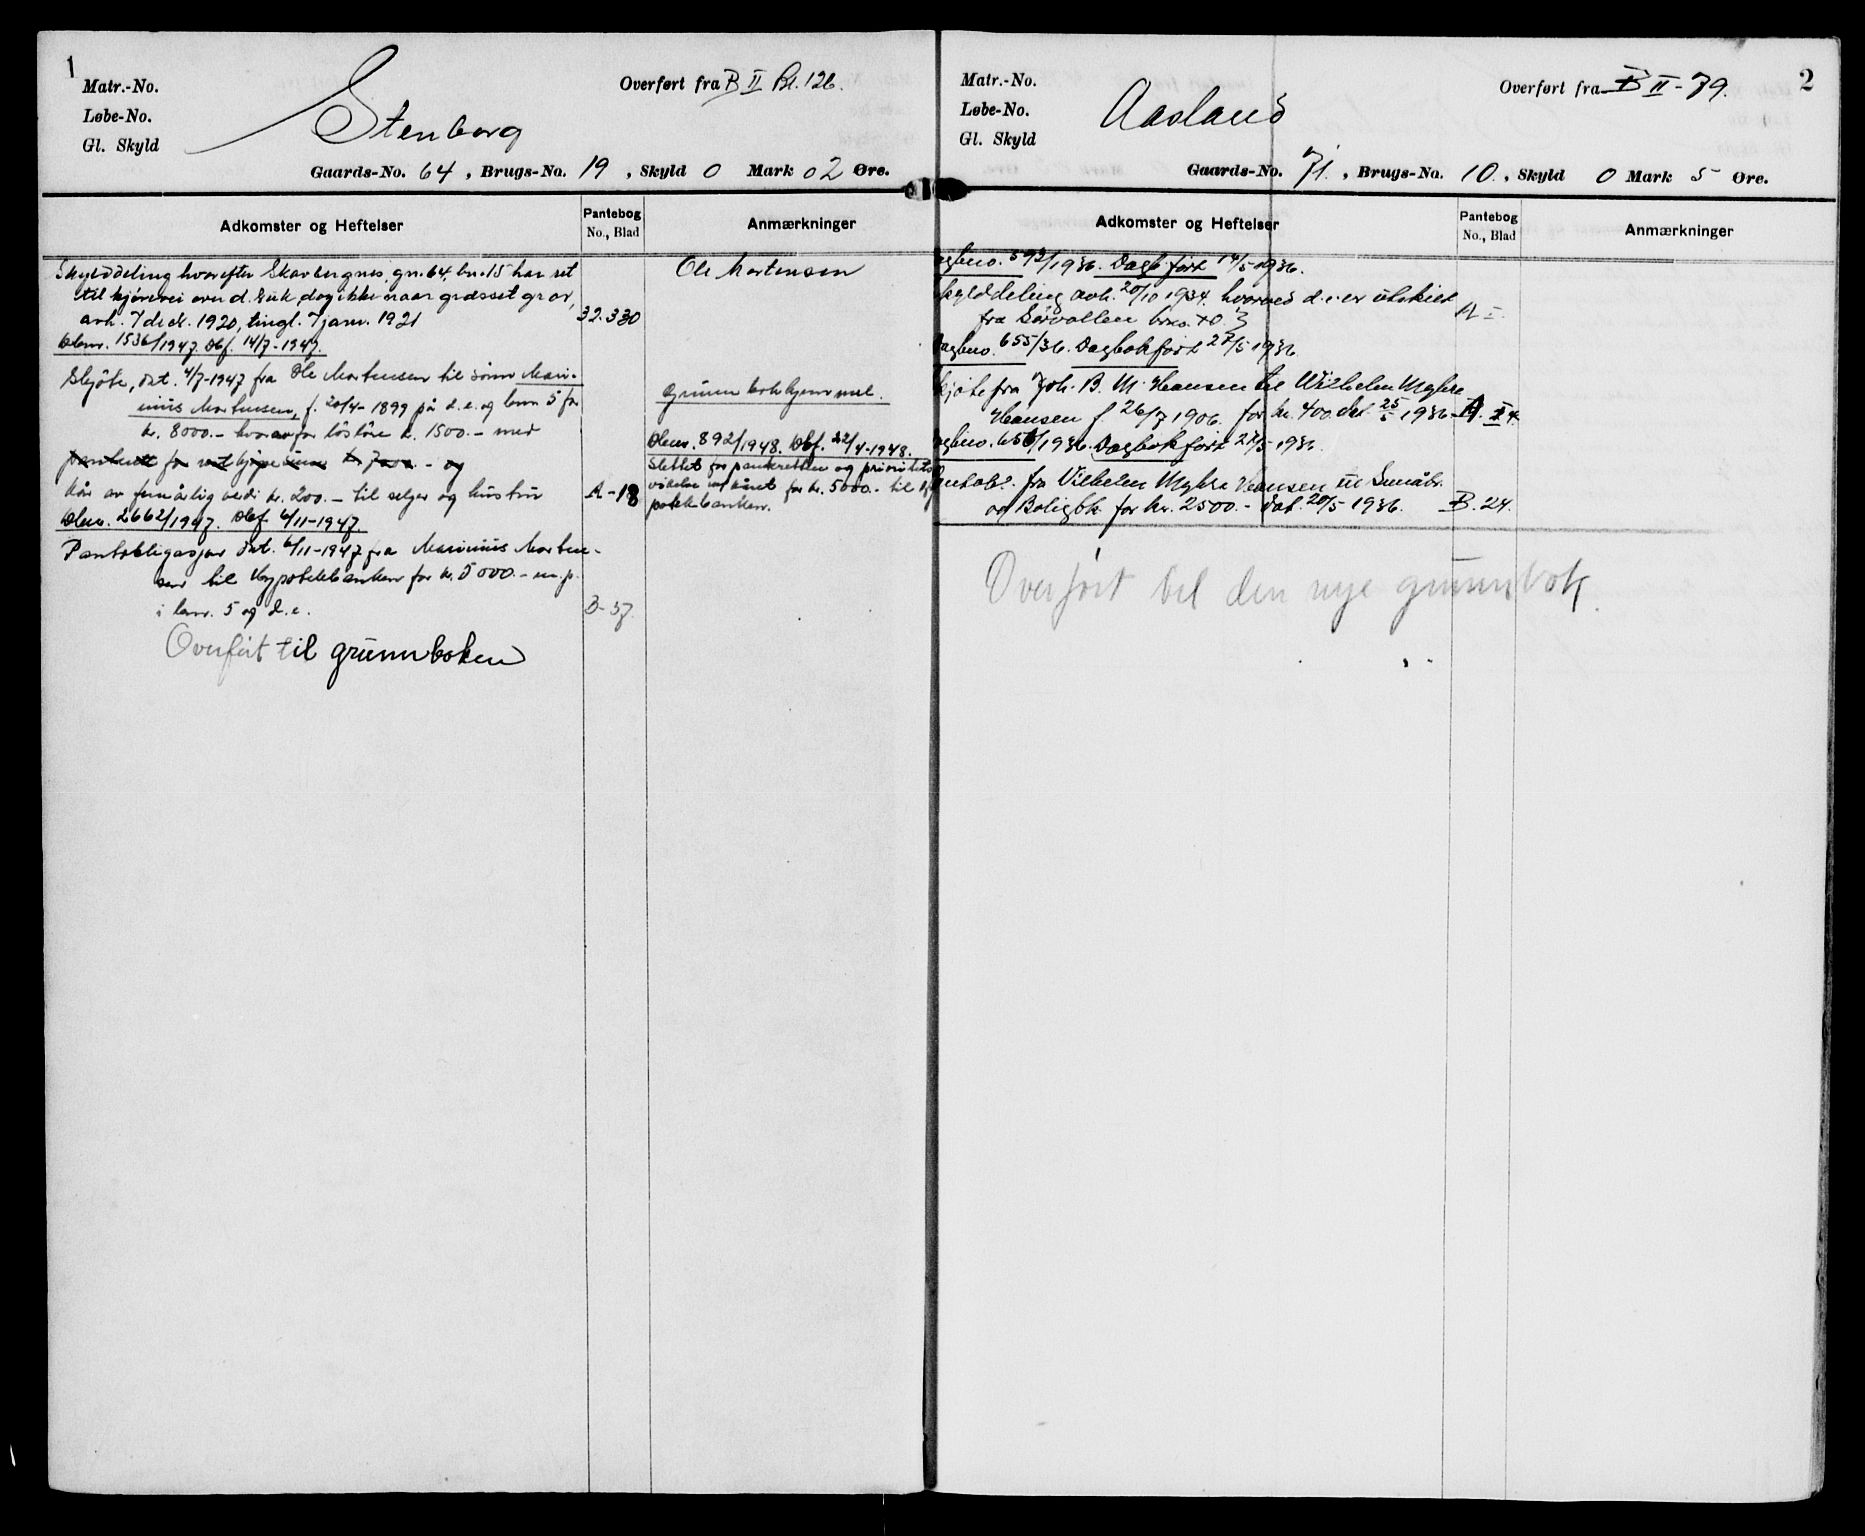 1
Matr.-No.
Løbe-No.
Gl. Skyld
Stenberg
Overført fra B II Bl. 126.
Gaards-No. 64, Brugs-No. 19, Skyld 0 Mark 02 Øre.
Adkomster og Heftelser
Pantebog
No., Blad
Anmærkninger
Skylddeling hvorefter Skavbergnes, gn. 64, bn. 15 har ret
til kjørevei over d. bruk, dog ikke naar græsset gror,
avh. 7 dech. 1920, tingl. 7 janr. 1921
32.330
Ole Mortensen
Dbnr. 1536/1947. Dbf. 14/7-1947.
Skjøte, dat. 4/7-1947 fra Ole Mortensen til sønn Mari-
nius Mortensen, f. 20/4-1899 på d.e. og bnr 5 for
kr. 8000.- hvorav for løsøre kr. 1500.- med
panterett for kr. 7000.- og
kår av femårlig verdi kr. 200.- til selger og hustru
A-18
grunnbokhjemmel.
Dbnr. 892/1948. Dbf. 22/4-1948.
Slettet for panteretten og prioritets-
vikelse kåret for kr. 5000.- til Hy-
potekbanken.
Dbnr. 2662/1947. Dbf. 6/11-1947.
Pantobligasjon dat. 6/11-1947 fra Marinius Morten-
sen til Hypotekbanken for kr. 5000.- m.p.
i bnr. 5 og d.e.
B-57.
Overført til grunnboken
2
Matr.-No.
Løbe-No.
Gl. Skyld
Aasland
Overført fra B II-79.
Gaards-No. 71., Brugs-No. 10., Skyld 0 Mark 5 Øre.
Adkomster og Heftelser
Pantebog
No., Blad
Anmærkninger
agbno. 592/1936. Dagb.ført 14/5 1936.
kylddeling avh. 20/10 1934 hvorved d.e. er utskilt
fra Sørvollen
A I.
agbno. 655/36. Dagbokført 27/5 1936.
kjøte fra Joh. B. M. Hansen til Wilhelm Myhre
Hansen f. 26/7 1906. for kr. 400. dat. 25/5 1936
A. I 4.
agbno. 656/1936. Dagbokført 27/5 1936.
antobl. fra Vilhelm Myhre Hansen til Småbr.
og Boligbk. for kr. 2500.- dat. 20/5-1936.
B. 24.
Overført til den nye grunnbok.